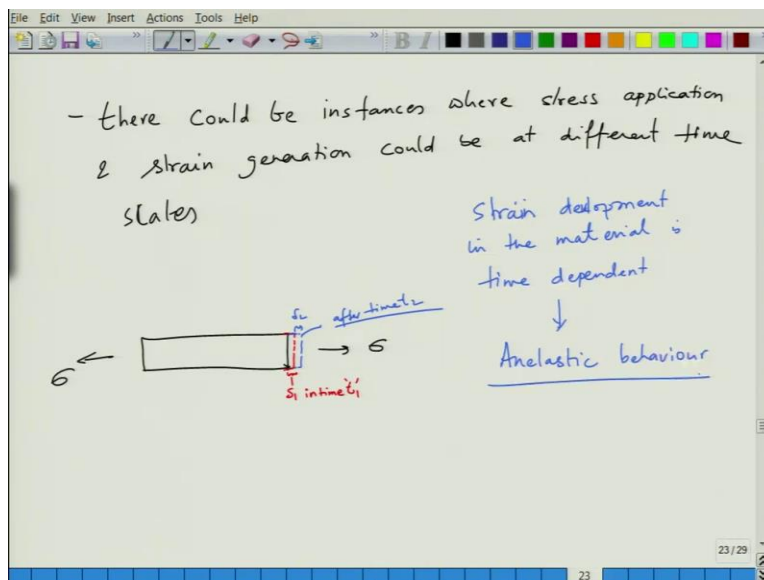 File Edit View Insert Actions Tools Help
- there could be instances where stress application
& strain generation could be at different time
scales
Strain development
in the material is
time dependent
↓
Anelastic behaviour
δ₂ after time t₂
σ ← → σ
δ₁ in time 't₁'
23/29
23